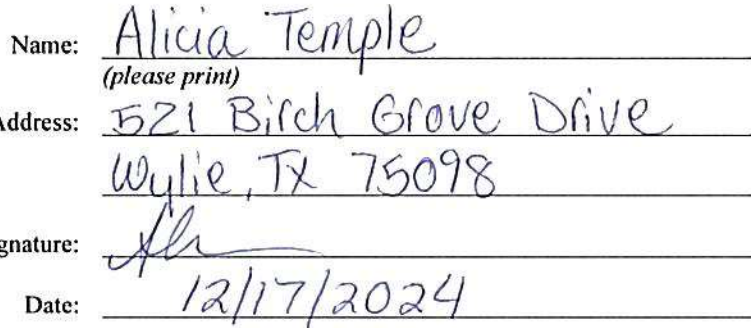 Name: Alicia Temple
(please print)
Address: 521 Birch Grove Drive
Wylie, TX 75098
gnature:
Date: 12/17/2024